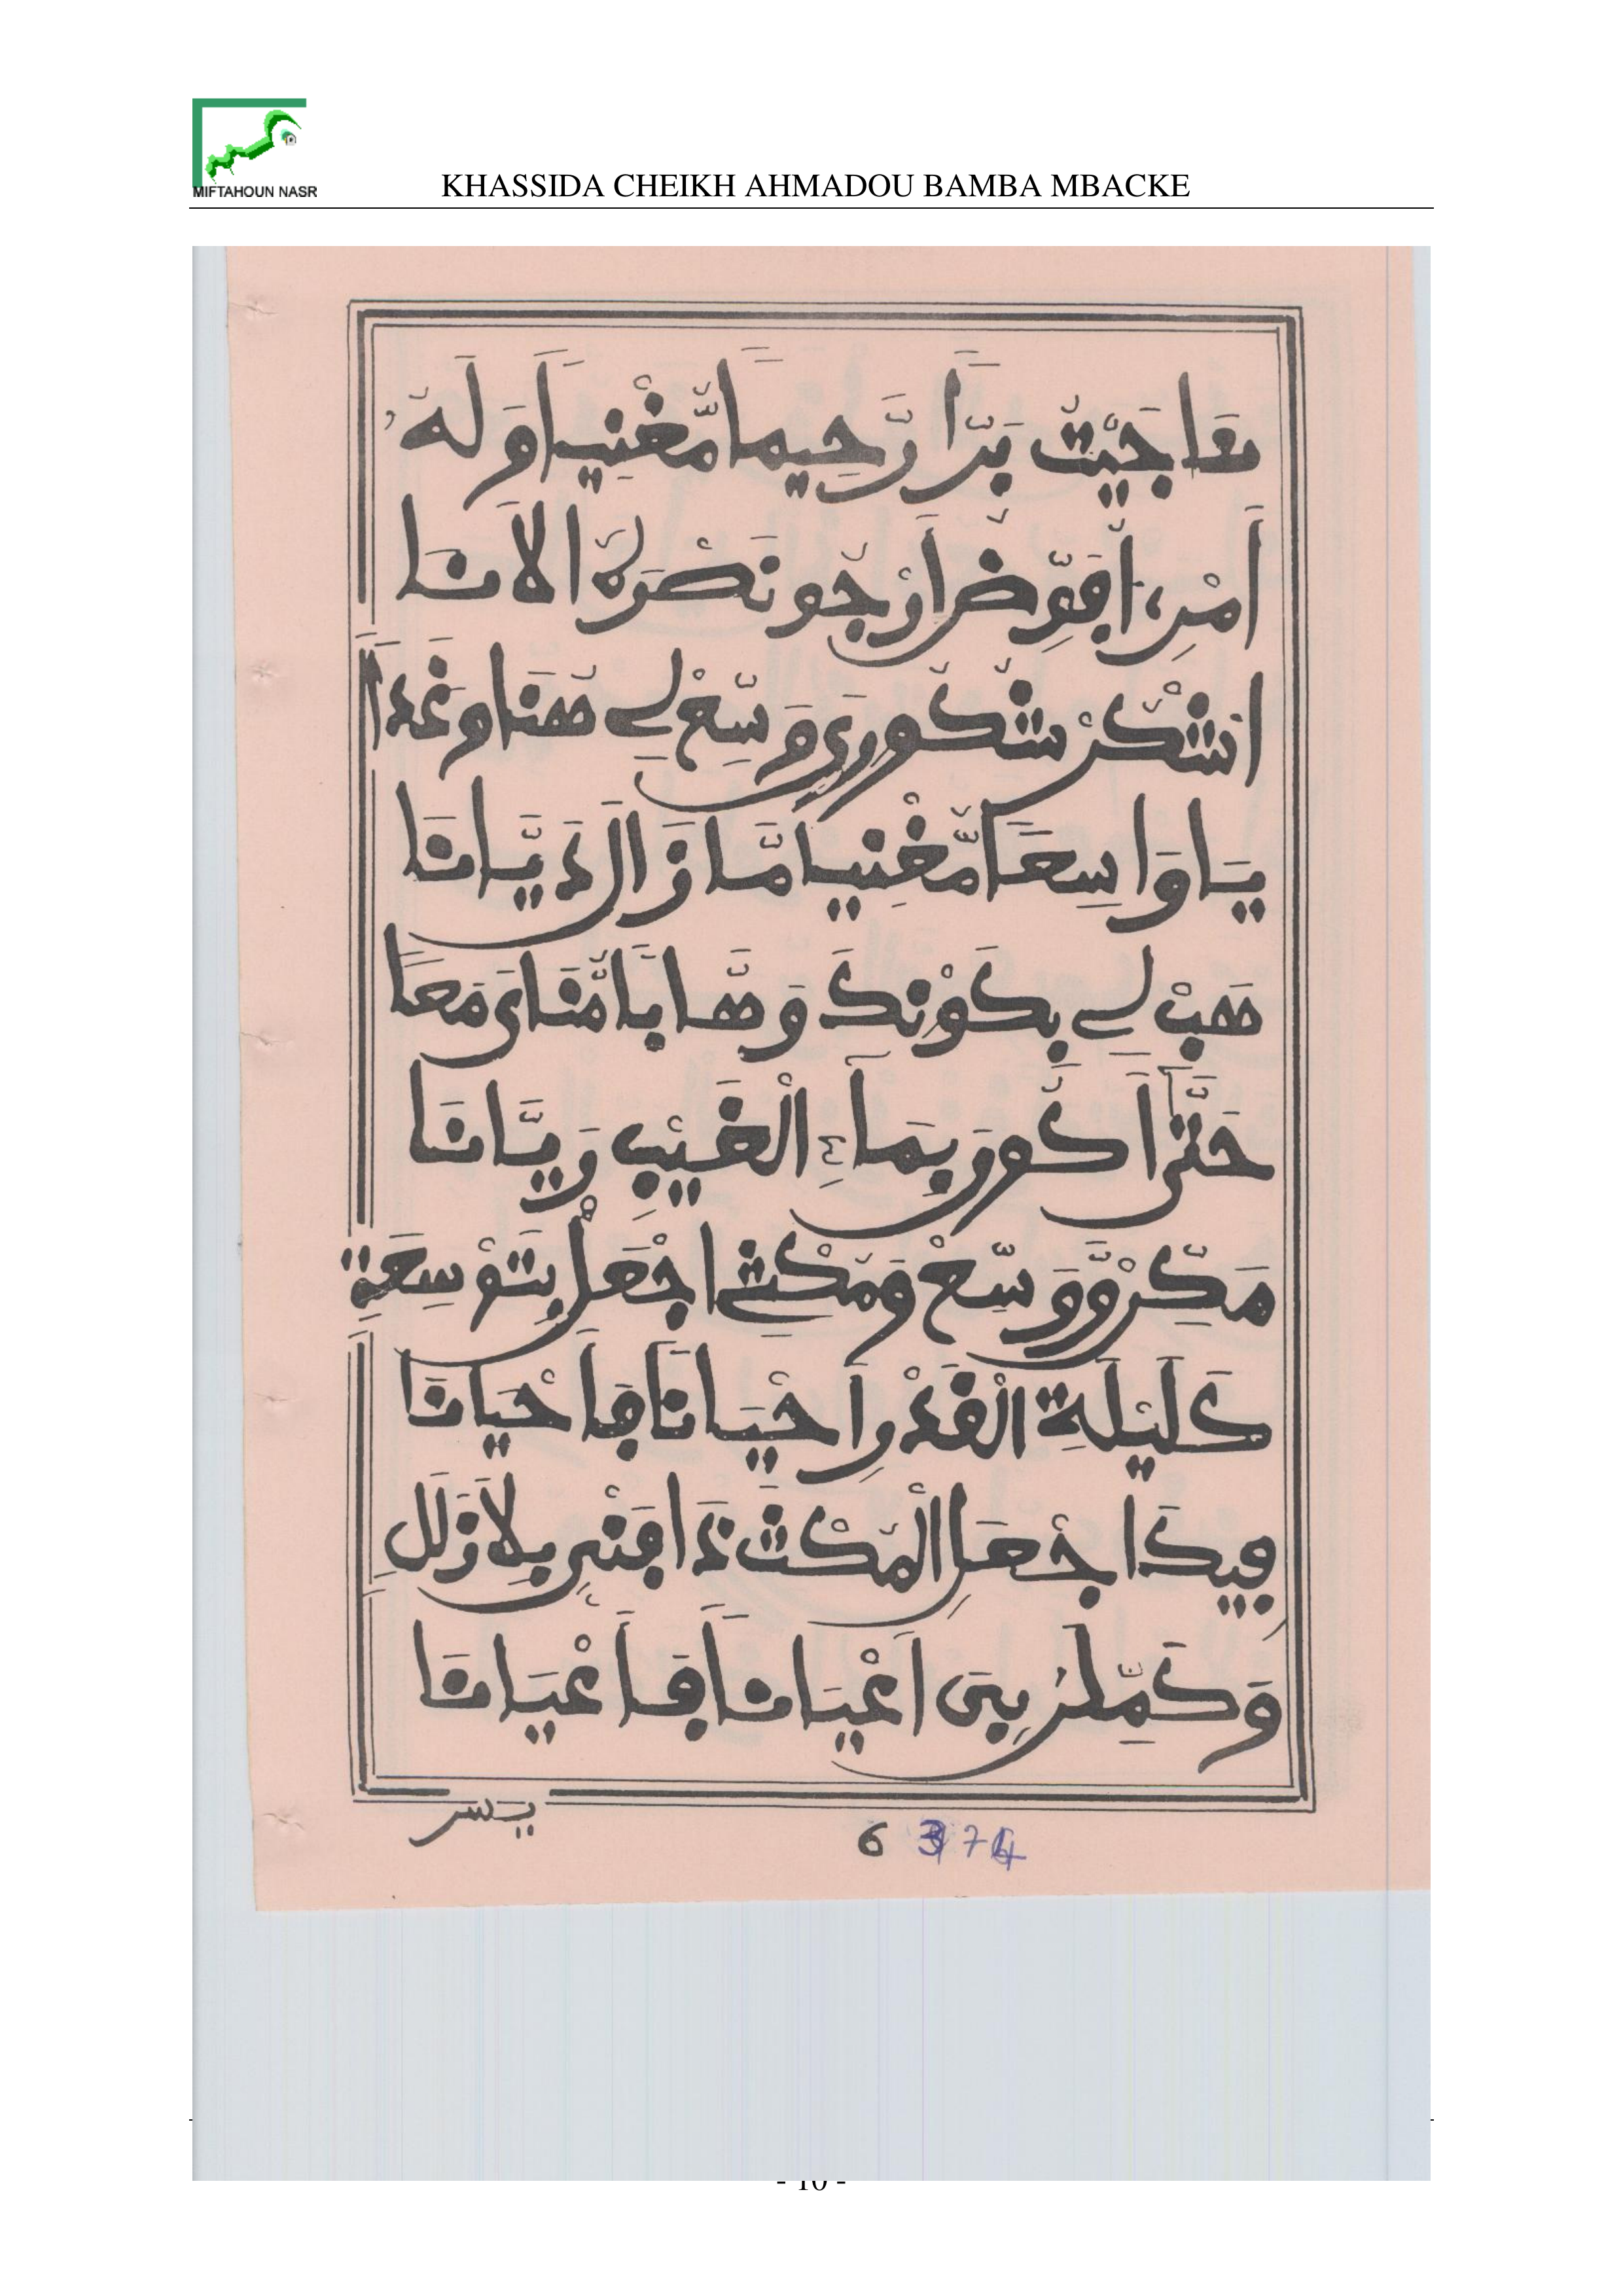 MIFTAHOUN NASR
KHASSIDA CHEIKH AHMADOU BAMBA MBACKE
نَاجَيْتُ بَرًّا رَّحِيمًا مُّغْنِيًا وَلَهُ
أَمْرِي أُفَوِّضُ أَرْجُو نَصْرَهُ الْآنَا
اشْكُرْ شُكُورِي وَوَسِّعْ لِي هُنَا وَغَدًا
يَا وَاسِعًا مُّغْنِيًا مَّا زَالَ دَيَّانَا
هَبْ لِي بِكَوْنِكَ وَهَّابًا مُّنَايَ مَعًا
حَتَّى أَكُونَ بِمَاءِ الْغَيْبِ رَيَّانَا
مَكِّنْ وَوَسِّعْ وَمُكْثِي اجْعَلْ بِتَوْسِعَةِ
كَلَيْلَةِ الْقَدْرِ أَحْيَانًا فَأَحْيَانَا
فِيكَ اجْعَلِ الْمُكْثَ ذَا فَنٍّ بِلَا زَلَلِ
وَكَمِّلَنْ بِيَ أَعْيَانًا فَأَعْيَانَا
يسر
6 374
- 10 -